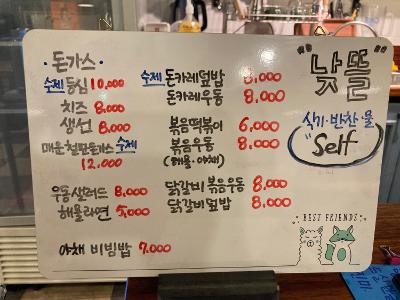 · 돈가스 ·
수제 등심 10,000
치즈 8,000
생선 8,000
매운 철판돈가스 수제
12,000
우동샐러드 8,000
해물라면 5,000
야채 비빔밥 7,000
수제 돈카레덮밥 8,000
돈카레우동 8,000
볶음떡볶이 6,000
볶음우동 8,000
(해물·야채)
닭갈비 볶음우동 8,000
닭갈비덮밥 8,000
"낮뜰"
식기·반찬·물
"Self"
BEST FRIENDS